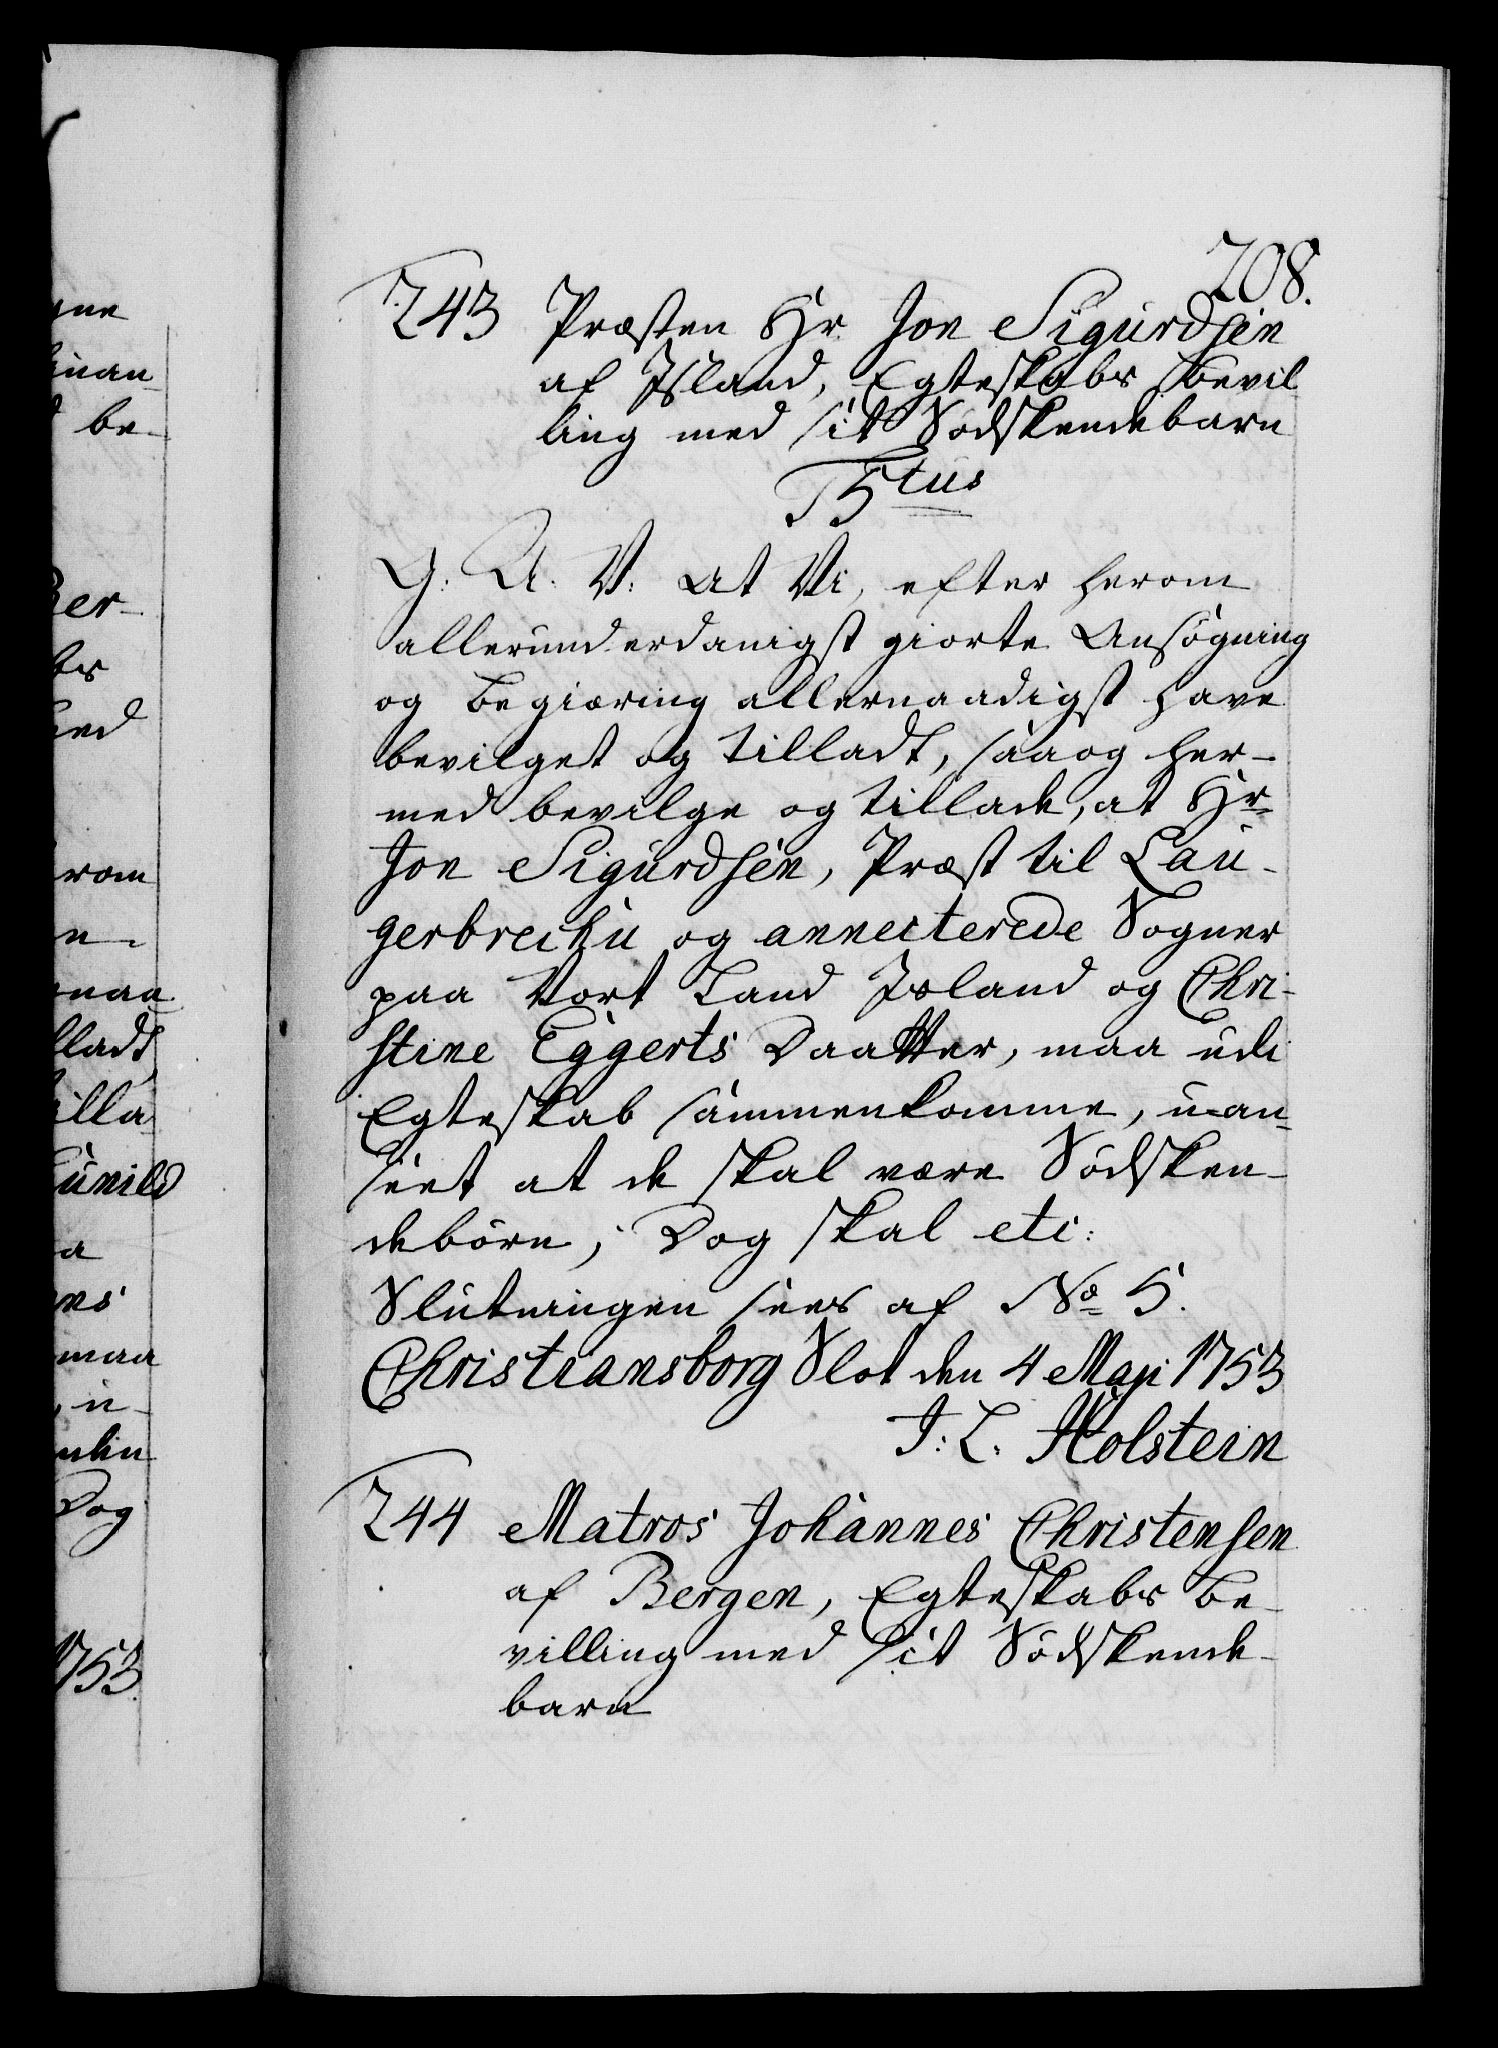 208.
243 Præsten Hr. Jon Sigurdsen
af Jsland, Egteskabs Bevil
ling med sit Södskendebarn
F5tus
G: A. V: At Vi, efter herom
allerunderdanigst giorte Ansögning
og Begiæring allernaadigst have
bevilget og tilladt, saa og her-
med bevilge og tillade, at Hr
Jon Sigurdsen, Præst til Lau-
gerbrechu og annecterede Sogner
paa Vort Land Jsland og Chri-
stine Eggerts Daatter, maa udi
Egteskab sammenkomme, u-an-
seet at de skal være Södsken-
debörn; Dog skal etc:
Slutningen sees af No 5.
Christiansborg Slot den 4 Maji 1753
J: L. Holstein
244 Matros Johannes Christensen
af Bergen, Egteskabs Be-
villing med sit Södskende-
barn